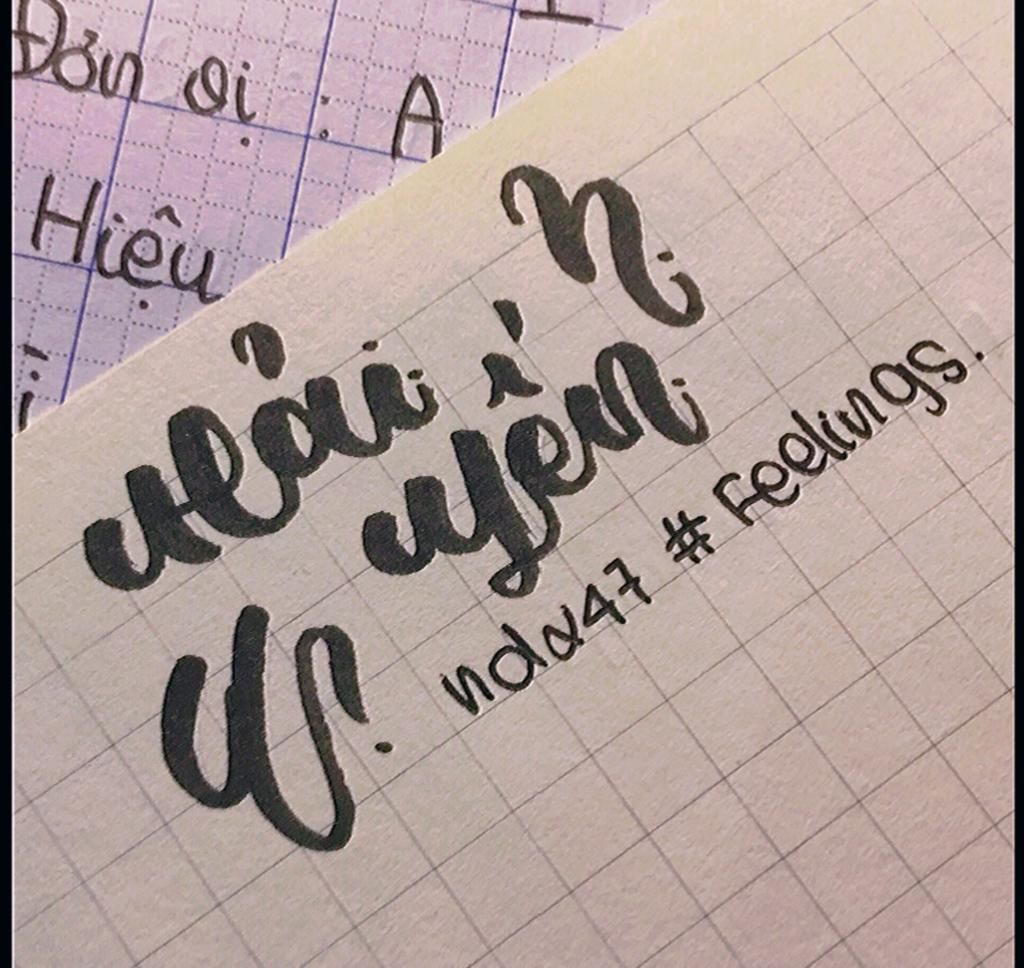 Đơn vị : A
Hiệu
n
Hải
Yến
ndα47 # Feelings.